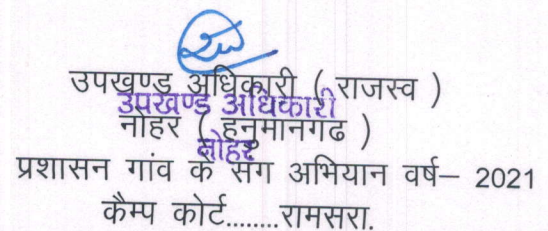 उपखण्ड अधिकारी ( राजस्व )
उपखण्ड अधिकारी
नोहर ( हनुमानगढ )
नोहर
प्रशासन गांव के संग अभियान वर्ष– 2021
कैम्प कोर्ट........रामसरा.